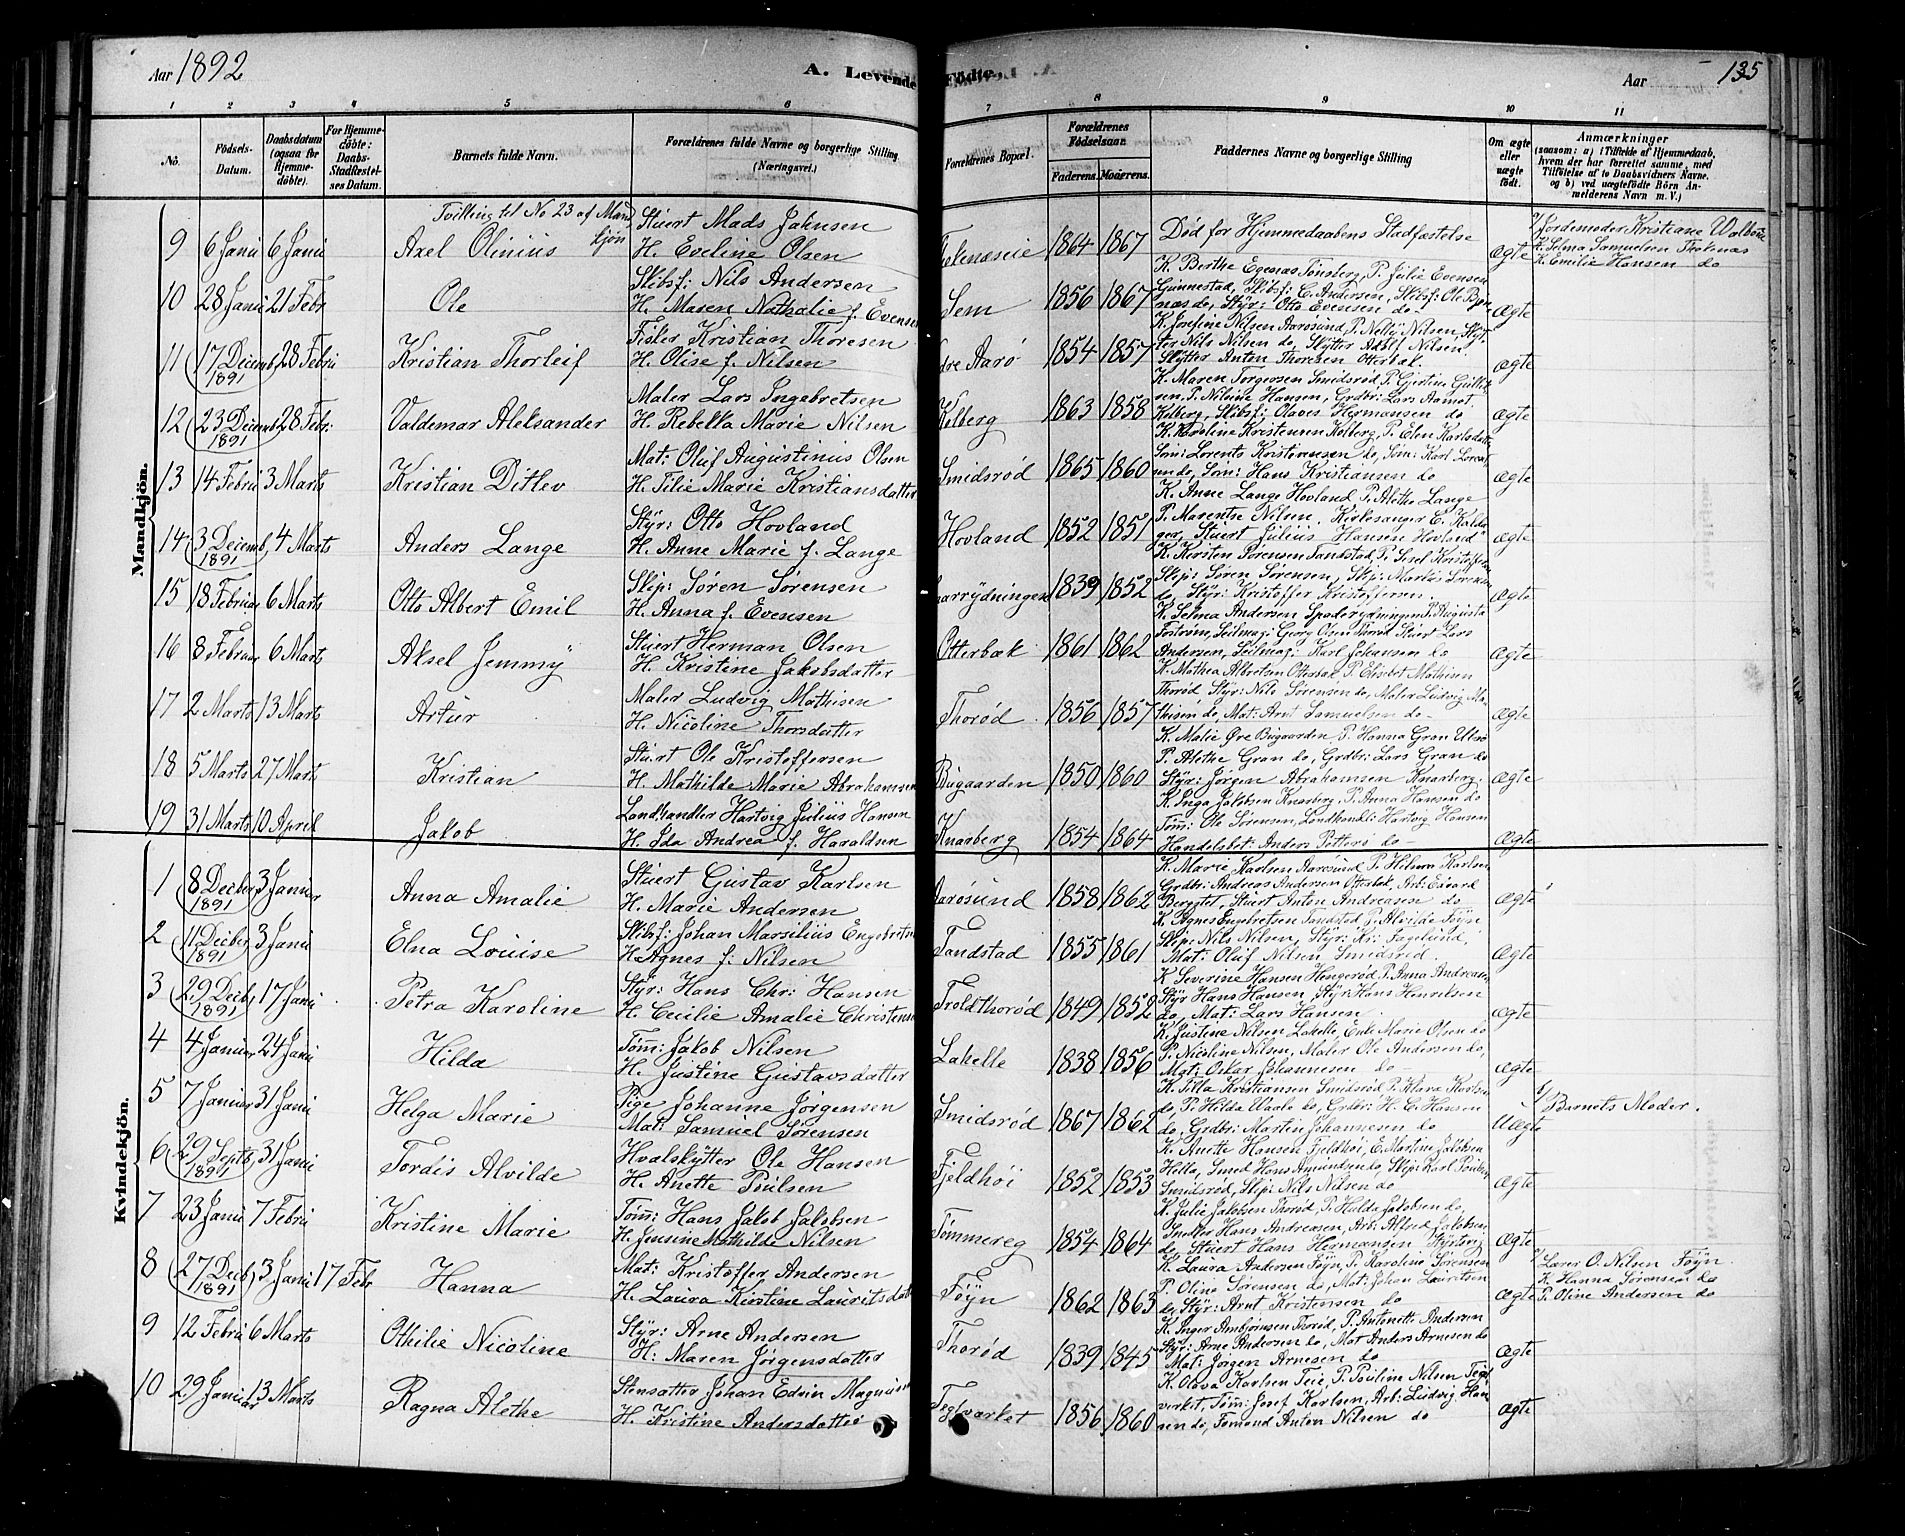 Aar 1892
A. Levende Fødte.
Aar
135
1 2 3 4 5 6 7 8 9 10 11
No.
Fødsels-Datum.
Daabsdatum (ogsaa for Hjemmedöbte).
For Hjemmedöbte: Daabs-Stadfæstelses Datum.
Barnets fulde Navn.
Forældrenes fulde Navne og borgerlige Stilling (Næringsvei.)
Forældrenes Bopæl.
Forældrenes Födselsaar. Faderens. Moderens.
Faddernes Navne og borgerlige Stilling
Om ægte eller uægte født.
Anmærkninger
(saasom: a) i Tilfælde af Hjemmedaab, hvem der har forrettet samme, med Tilføielse af to Daabsvidners Navne. og b) ved uægtefödte Börn Anmelderens Navn m. V.)
Mandkjön.
Tvilling til No 23 af Mandkjøn
9 6 Janu 6 Janu Axel Olinius
Stuert Mads Jahnsen
H. Eveline Olsen
1864 1867
Død før Hjemmedaabens Stadfæstelse
Ægte
Jordemoder Kristiane
K. Selma Samuelsen
K. Emilie Hansen do
10 28 Janu 21 Febr Ole
Skibsf: Nils Andersen
H. Maren Nathalie f. Evensen
Sem 1856 1867
K. Berthe Egenæs Tønsberg, P. Julie Evensen
Gunnestad, Skibsf: C. Andersen, Skibsf: Ole
do, Styr: Otto Evensen do
Ægte
11 17 Decemb 1891 28 Febru Kristian Thorleif
Fisker Kristian Thoresen
H. Olise f. Nilsen
dre Aarø 1854 1857
K. Josefine Nilsen Aarøsund, P. Nelly Nilsen, Skyt-
ter Nils Nilsen do, Skytter Adolf Nilsen.
Skytter Anton Thoresen Otterbæk.
Ægte
12 23 Decemb 1891 28 Febr: Valdemar Aleksander
Maler Lars Ingebretsen
H. Rebekka Marie Nilsen
Kolberg 1863 1858
K. Maren Torgersen Smidsrød, P. Gjertine
P. Nilsine Hansen, Grdbr: Lars Aamot
Kolberg, Skibsf: Olaves Hermansen do
Ægte
13 14 Febru 3 Marts Kristian Ditlev
Mat: Oluf Augustinus Olsen
H. Tilie Marie Kristiansdatter
Smidsrød 1865 1860
K. Karoline Kristensen Kolberg, P. Elen Karlsdatter
Søm: Lorents Kristiansen do, Søm: Karl
do, Søm: Hans Kristiansen do
Ægte
14 3 Decemb, 1891 4 Marts Anders Lange
Styr: Otto Hovland
H. Anne Marie f. Lange
Hovland 1852 1851
K. Anne Lange Hovland P. Alethe Lange
P. Marentse Nilsen, Kirkesanger E.
Stuert Julius Hansen Hovland
Ægte
15 18 Februar 6 Marts Otto Albert Emil
Skip: Søren Sørensen
H. Anna f. Evensen
1839 1852
K. Kirsten Sørensen Tandstad, P. Sisel Kristoffersen
Skip: Søren Sørensen, Skip: Markus Sørensen
do, Styr: Kristoffer Kristoffersen.
Ægte
16 8 Februar 6 Marts Aksel Jemmy
Stuert Herman Olsen
H. Kristine Jakobsdatter
Otterbæk 1861 1862
K. Selma Andersen P. Augusta
Seilmag: Georg Olsen Thorød Stuert Lars
Andersen, Seilmag: Karl Johansen do
Ægte
17 2 Marts 13 Marts Artur
Maler Ludvig Mathisen
H. Nicoline Thorsdatter
Thorød 1856 1857
K. Mathea Albretsen Otterbæk P. Elisbet Mathisen
Thorød Styr: Nils Sørensen do, Maler Ludvig Ma-
thisen do, Mat: Arnt Samuelsen do
Ægte
18 5 Marts 27 Mart Kristian
Stuert Ole Kristoffersen
H. Mathilde Marie Abrahamsen
Bugaarden 1850 1860
K. Malie Øre Bugaarden P. Hanna Gran
P. Alethe Gran do, Grdbr: Lars Gran do
Styr: Jørgen Abrahamsen Knarberg.
Ægte
19 31 Marts 10 April Jakob
Landhandler Hartvig Julius Hansen
H. Ida Andrea f. Haraldsen
Knarberg 1854 1864
K. Inga Jakobsen Knarberg, P. Anna Hansen do
Tøm: Ole Sørensen, Landhandl: Hartvig Hansen
Handelsbet: Anders Petterø do
Ægte
Kvindekjön.
1 8 Decber 1891 3 Januar Anna Amalie
Stuert Gustav Karlsen
H. Marie Andersen
Aarøsund 1858 1862
K. Marie Karlsen Aarøsund P. Hilma Karlsen
Grdbr: Andreas Andersen Otterbæk, Arb: Edvard
Stuert Anton Andreasen do
Ægte
2 11 Decber 1891 3 Janu Elna Louise
Skibsf: Johan Marsilius Engebretsen
H. Agnes f. Nilsen
Tandstad 1855 1861
K. Agnes Engebretsen Tandstad P. Alvilde Føyn
Skip: Nils Nilsen, Styr: Kr: Fagelund,
Mat: Oluf Nilsen Smidsrød.
Ægte
3 29 Decb, 1891 17 Janu Petra Karoline
Styr: Hans Chr: Hansen
H. Cecilie Amalie Christensen
Troldthorød 1849 1852
K Severine Hansen Hengerød P. Anna Andreasen
Styr Hans Hansen, Styr: Hans Henriksen
do, Mat: Lars Hansen.
ægte
4 4 Januar 24 Janu Hilda
Tøm: Jakob Nilsen
H. Justine Gustavsdatter
Lahelle 1838 1856
K. Justine Nilsen Lahelle, Enke Marie Olsen do
P. Nicoline Nilsen, Maler Ole Andersen do,
Mat: Oskar Johannesen do
Ægte
5 7 Januar 31 Janu Helga Marie
Pige Johanne Jørgensen
Mat: Samuel Sørensen
Smidsrød 1867 1862
K. Tilla Kristiansen Smidsrød P. Klara Karlsen
do, P. Hilda Waale do, Grdbr: H. C. Hansen
do, Grdbr: Martin Johannesen do
Uægte
Barnets Moder.
6 29 Septb, 1891 31 Janu Tordis Alvilde
Hvalskytter Ole Hansen
H. Anette Poulsen
Fjeldhøi 1852 1853
K. Anette Hansen Fjeldhøi, E. Martine Jakobsen
Hella, Smed Hans Amundsen do, Skip: Karl Poulsen
Smidsrød, Skip: Nils Nilsen do
Ægte
7 23 Janu 7 Febru Kristine Marie
Tøm: Hans Jakob Jakobsen
H. Jensine Mathilde Nilsen
Tømmereg 1854 1864
K. Julie Jakobsen Thorød, P. Hulda Jakobsen do,
Hans Andreasen, Arb: Alfred Jakobsen
do, Stuert Hans Hermansen
Ægte
8 27 Decb, 1891 3 Janu 17 Feb Hanna
Mat: Kristoffer Andersen
H. Laura Kirstine Lauritsdatter
Føyn 1862 1863
K. Laura Andersen Føyn, P. Karoline Sørensen
P. Oline Sørensen do, Mat: Johan Lauritsen
do, Styr: Arnt Kristensen do
Ægte
Lærer O. Nilsen Føyn.
K. Hanna Sørensen do
P. Oline Andersen do
9 12 Febru 6 Marts Othilie Nicoline
Styr: Arne Andersen
H: Maren Jørgensdatter
Thorød 1839 1845
K. Inger Arnbjørnsen Thorød, P. Antonette Andersen
Styr: Arne Andersen do, Mat Anders Arnesen do
Mat: Jørgen Arnesen do
Ægte
10 29 Januar 13 Marts Ragna Alethe
Stensætter Johan Edvin Magnusen
H. Kristine Andersdatter
Teglværket 1856 1860
K. Olava Karlsen Teie, P. Pouline Nilsen Tegl-
verket, Tøm: Josef Karlsen, Arb: Ludvig Han-
sen do, Tømand Anton Nilsen do
Ægte